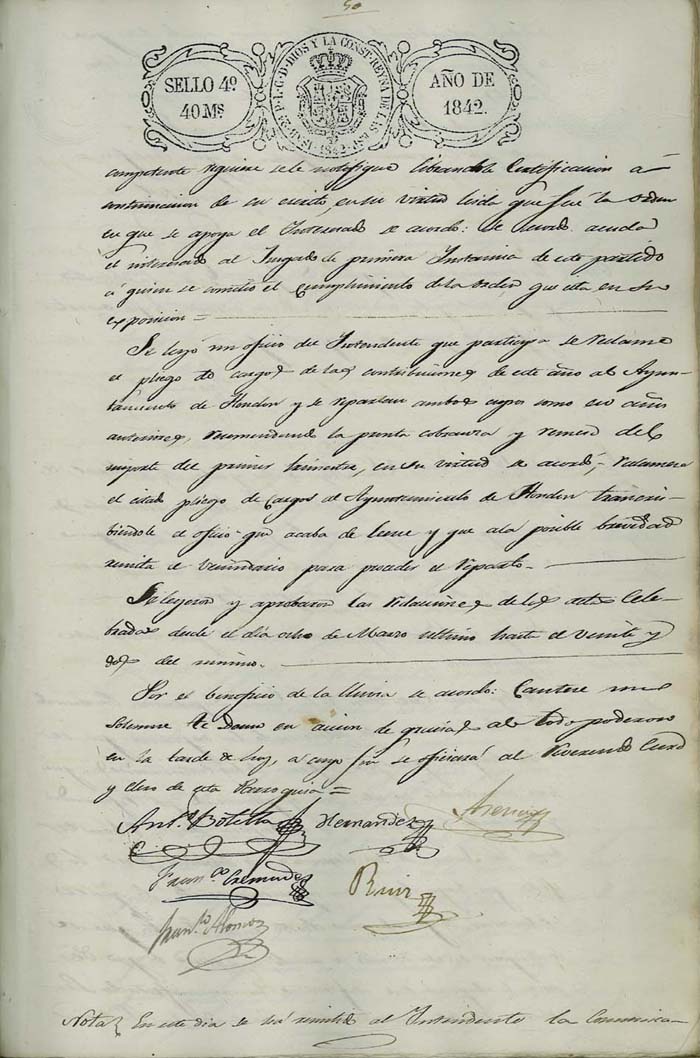 50
SELLO 4º
40 Ms
ISAB. 2ª P. L. G. D. DIOS Y LA CONST. REYNA DE LAS ESP. 1842
AÑO DE
1842.
competente requiere se le notifique librandole Certificacion á
continuacion de su escrito, en su virtud leida que fué la orden
en que se apoya el Interesado se acordó: Se acuda
el interesado al Juzgado de primera Instancia de este partido
á quien se cometió el cumplimiento de la orden que cita en su
exposicion =
Se leyó un oficio del Intendente que participa se reclame
el pliego de cargos de las contribuciones de este año al Ayun-
tamiento de Hondon y se repartan ambos cupos como en años
anteriores, recomendando la pronta cobranza y remesa del
importe del primer trimestre, en su virtud se acordó, reclamera
el citado pliego de Cargos al Ayuntamiento de Hondon transcri-
biendole el oficio que acaba de leerse y que á la posible brevedad
remita el vecindario para proceder al reparto.
Se leyeron y aprobaron las relaciones de las actas Cele-
bradas desde el dia ocho de Marzo ultimo hasta el veinte y
dos del mismo.
Por el beneficio de la lluvia se acordó: Cantese un
solemne te Deum en accion de gracias al todo poderoso
en la tarde de hoy, a cuyo fin se oficiará al Reverendo Cura
y clero de esta Parroquia =
Antº Botella Hernandez
Franco Cremades Ruiz
Franco Alonso
Nota En este dia se há remitido al Intendente la Comunica-